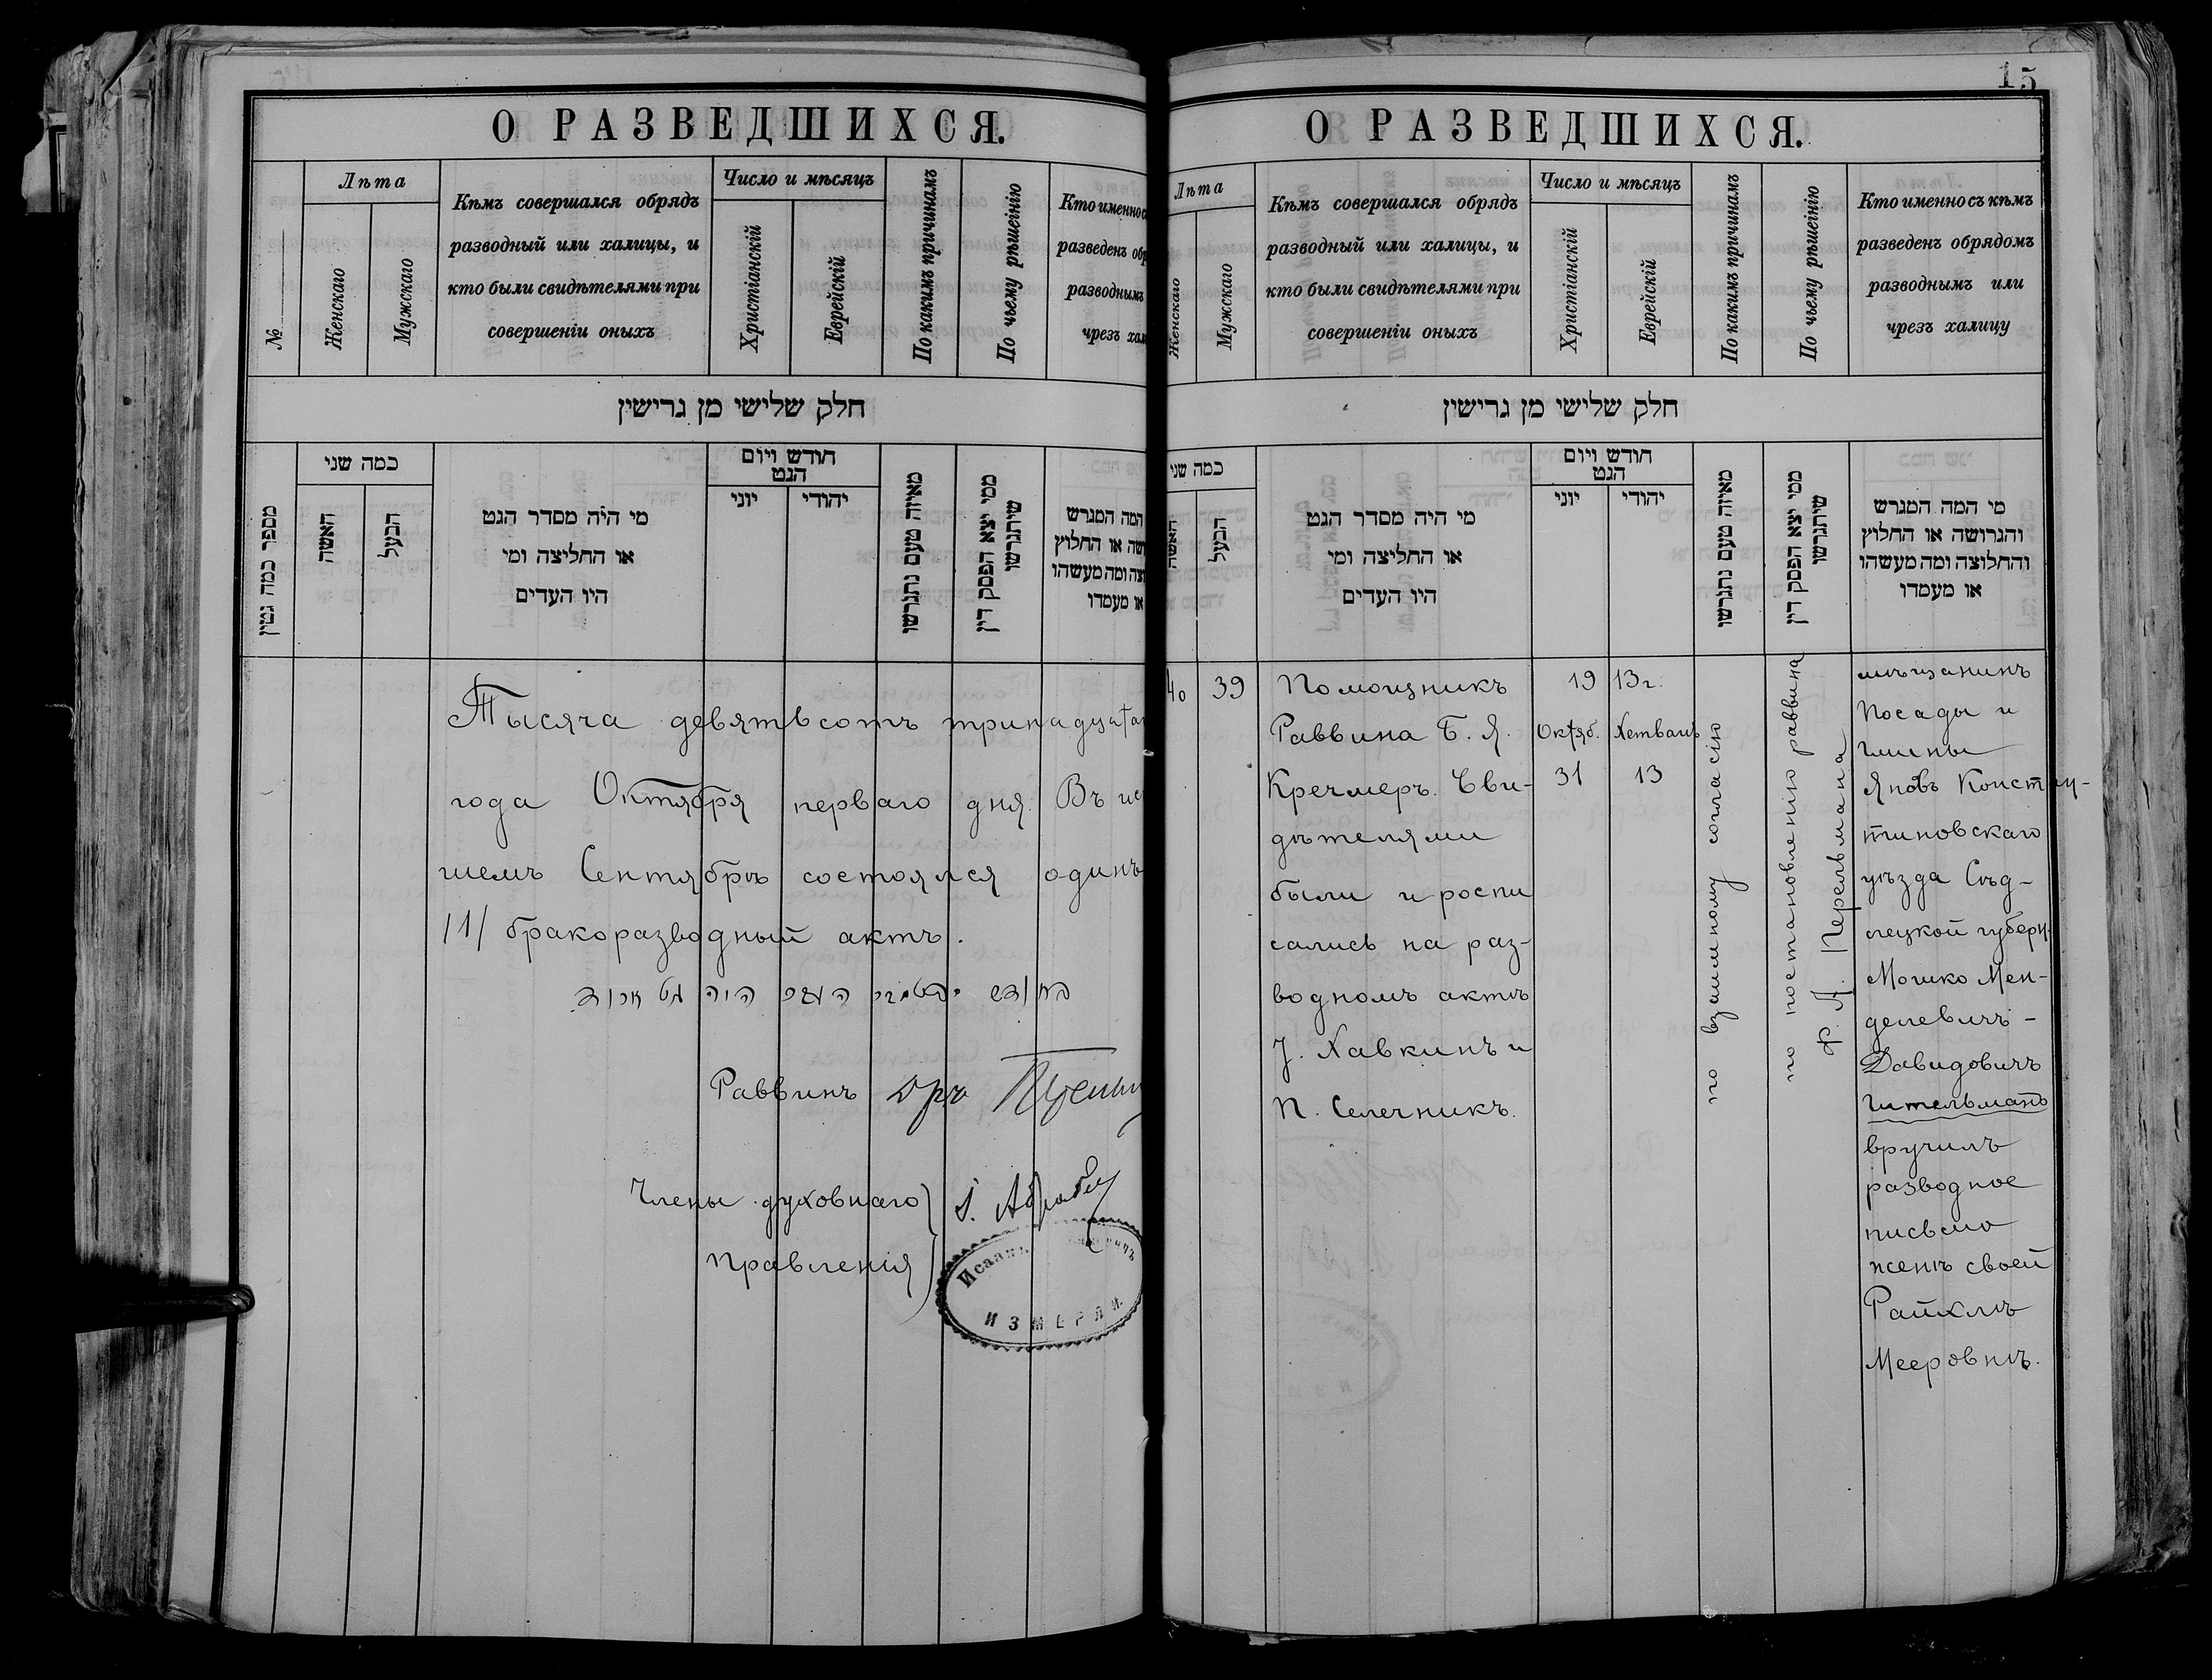 О РАЗВЕДШИХСЯ.
№
Лѣта
Женскаго
Мужскаго
Кѣмъ совершался обрядъ
разводный или халицы, и
кто были свидѣтелями при
совершеніи оныхъ
Число и мѣсяцъ
Христіанскій
Еврейскій
По какимъ причинамъ
По чьему рѣшеінію
Кто именно с
разведенъ обр
разводнымъ
чрезъ хал
חלק שלישי מן גרישין
מספר כמה גטין
כמה שני
האשה
הבעל
מי היה מסדר הגט
או החליצה ומי
היו העדים
חודש ויום
הגט
יוני
יהודי
מאיזה טעם נתגרשו
ממי יצא הפסק דין
שיתגרשו
המה המגרש
ושה או החלוץ
וצה ומה מעשהו
או מעמדו
Тысяча девятьсотъ тринадцат
года Октября перваго дня. Въ ис
шемъ Сентябрѣ состоялся одинъ
/1/ бракоразводный актъ.
Раввинъ
Члены духовнаго
правленія
Исаакъ
ИЗМЕРЛИ.
15
О РАЗВЕДШИХСЯ.
Лѣта
Женскаго
Мужскаго
Кѣмъ совершался обрядъ
разводный или халицы, и
кто были свидѣтелями при
совершеніи оныхъ
Число и мѣсяцъ
Христіанскій
Еврейскій
По какимъ причинамъ
По чьему рѣшеінію
Кто именно съ кѣмъ
разведенъ обрядомъ
разводнымъ или
чрезъ халицу
חלק שלישי מן גרישין
כמה שני
האשה
הבעל
מי היה מסדר הגט
או החליצה ומי
היו העדים
חודש ויום
הגט
יוני
יהודי
מאיזה טעם נתגרשו
ממי יצא הפסק דין
שיתגרשו
מי המה המגרש
והגרושה או החלוץ
והחלוצה ומה מעשהו
או מעמדו
40
39
Помощникъ
Раввина Б. Я.
Кречмеръ. Сви-
дѣтелями
были и роспи
сались на раз-
водномъ актѣ
І. Хавкинъ и
П. Селечникъ.
19 13г.
Октяб. Хетванъ
31 13
по взаимному согласію
по постановленію раввина
Ф. А. Перельмана
мѣщанинъ
посады и
гмины
Яновъ Констан-
тиновскаго
уѣзда Сѣд-
лецкой губерн.
Мошко Мен-
делевичъ-
Давидовичъ
Гительманъ
вручилъ
разводное
письмо
женѣ своей
Райхлѣ
Мееровнѣ.